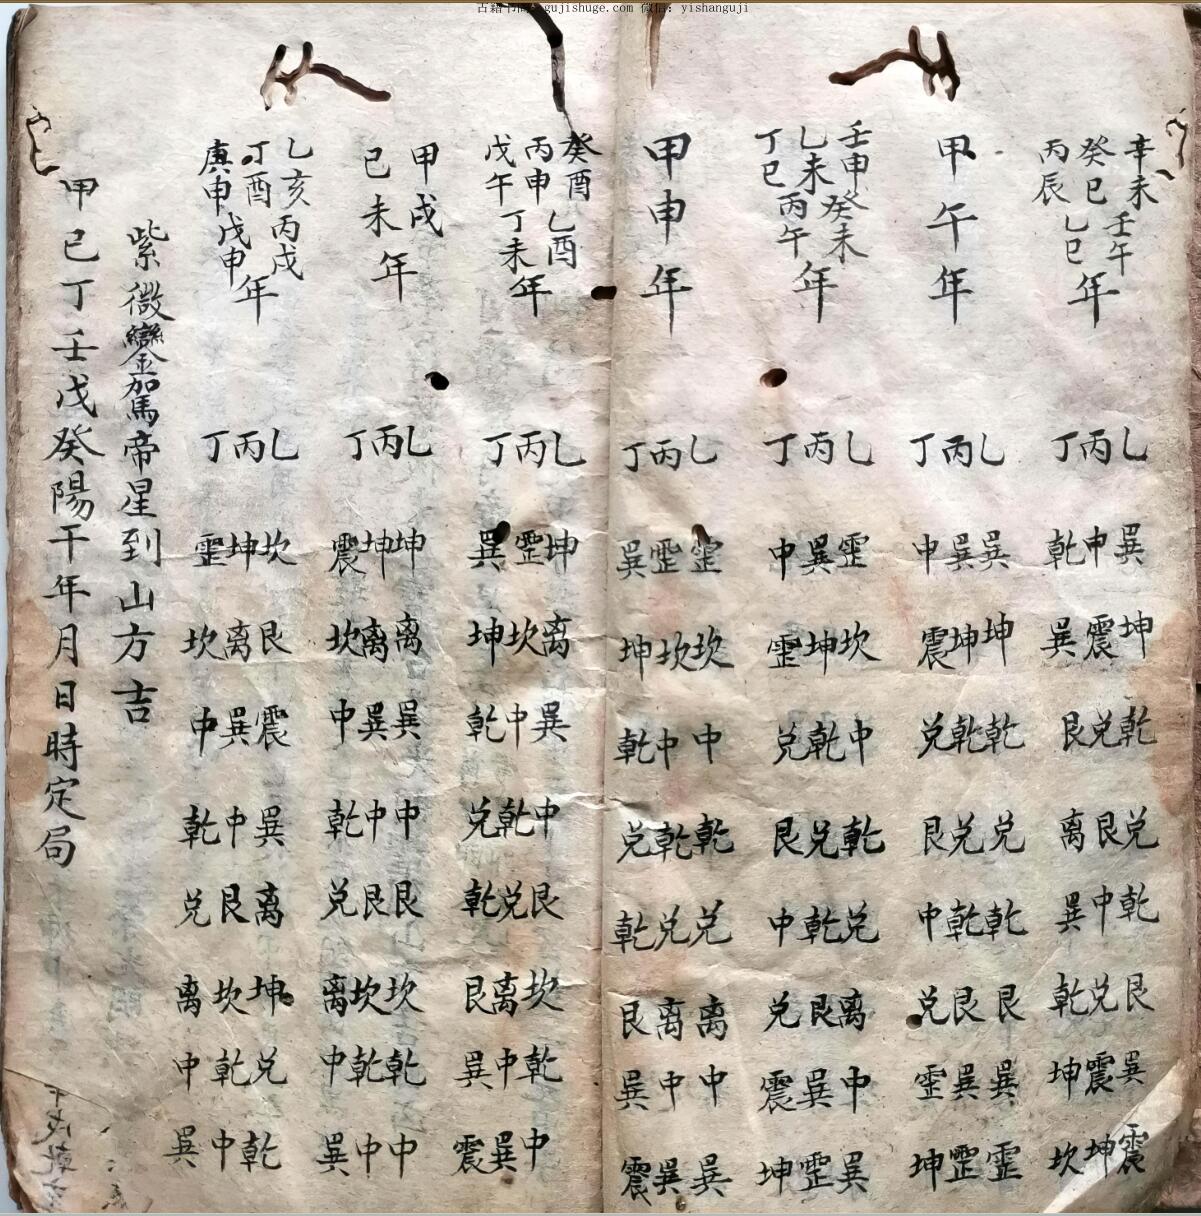 gujishuge.com 微信: yishanguji
辛未 壬午
癸巳 乙巳 年
丙辰
乙巽坤乾兑乾艮巽震
丙中震兑艮中兑震坤
丁乾巽艮离巽乾坤坎
甲午年
乙巽坤乾兑乾艮巽震
丙巽坤乾兑乾艮巽震
丁中震兑艮中兑震坤
壬申 癸未
乙未 丙午 年
丁巳
乙震坎中乾兑离中巽
丙巽坤乾兑乾艮巽震
丁中震兑艮中兑震坤
甲申年
乙震坎中乾兑离中巽
丙震坎中乾兑离中巽
丁巽坤乾兑乾艮巽震
癸酉 乙酉
丙申 丁未 年
戊午
乙坤离巽中艮坎乾中
丙震坎中乾兑离中巽
丁巽坤乾兑乾艮巽震
甲戌
己未 年
乙坤离巽中艮坎乾中
丙坤离巽中艮坎乾中
丁震坎中乾兑离中巽
乙亥 丙戌
丁酉 戊申 年
庚申
乙坎艮震巽离坤兑乾
丙坤离巽中艮坎乾中
丁震坎中乾兑离中巽
紫微鑾駕帝星到山方吉
甲己丁壬戊癸陽干年月日時定局